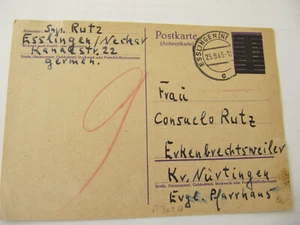 Absender: Rutz
Esslingen/Neckar
Kanalstr. 22
German.
Straße, Hausnummer, Gebäudeteil, Stockwerk oder Postschließfachnummer
Postkarte
(Antwortkarte)
ESSLINGEN (N)
Frau
Consuelo Rutz
Erkenbrechtsweiler
Kr. Nürtingen
Straße, Hausnummer, Gebäudeteil, Stockwerk oder Postschließfachnummer
Evgl. Pfarrhaus